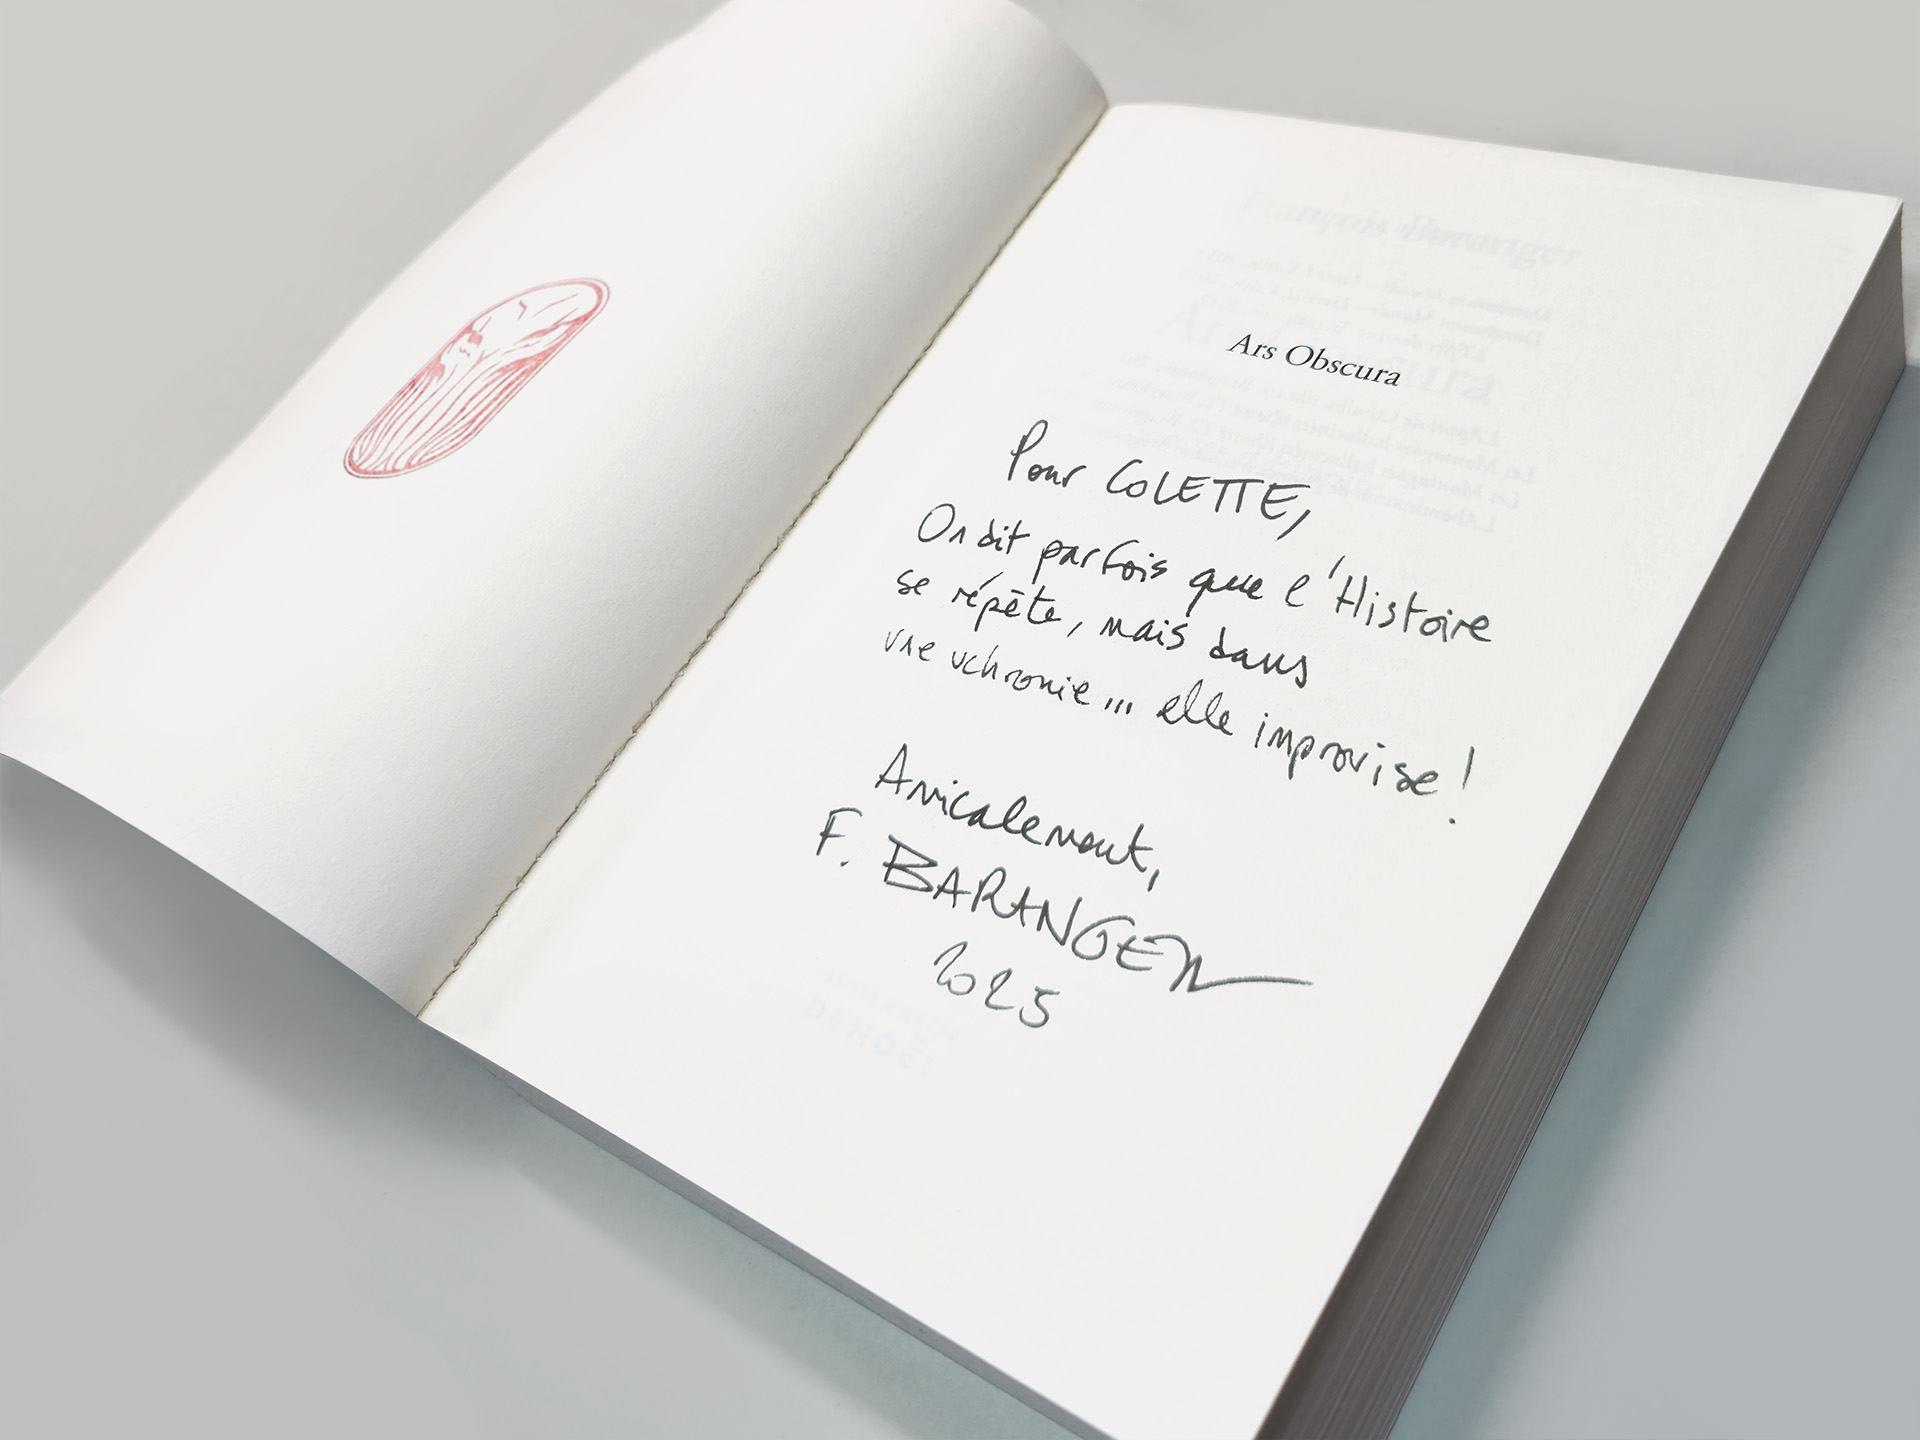 Ars Obscura
Pour COLETTE,
On dit parfois que l'Histoire
se répète, mais dans
une uchronie... elle improvise !
Amicalement,
F. BARANGER
2025